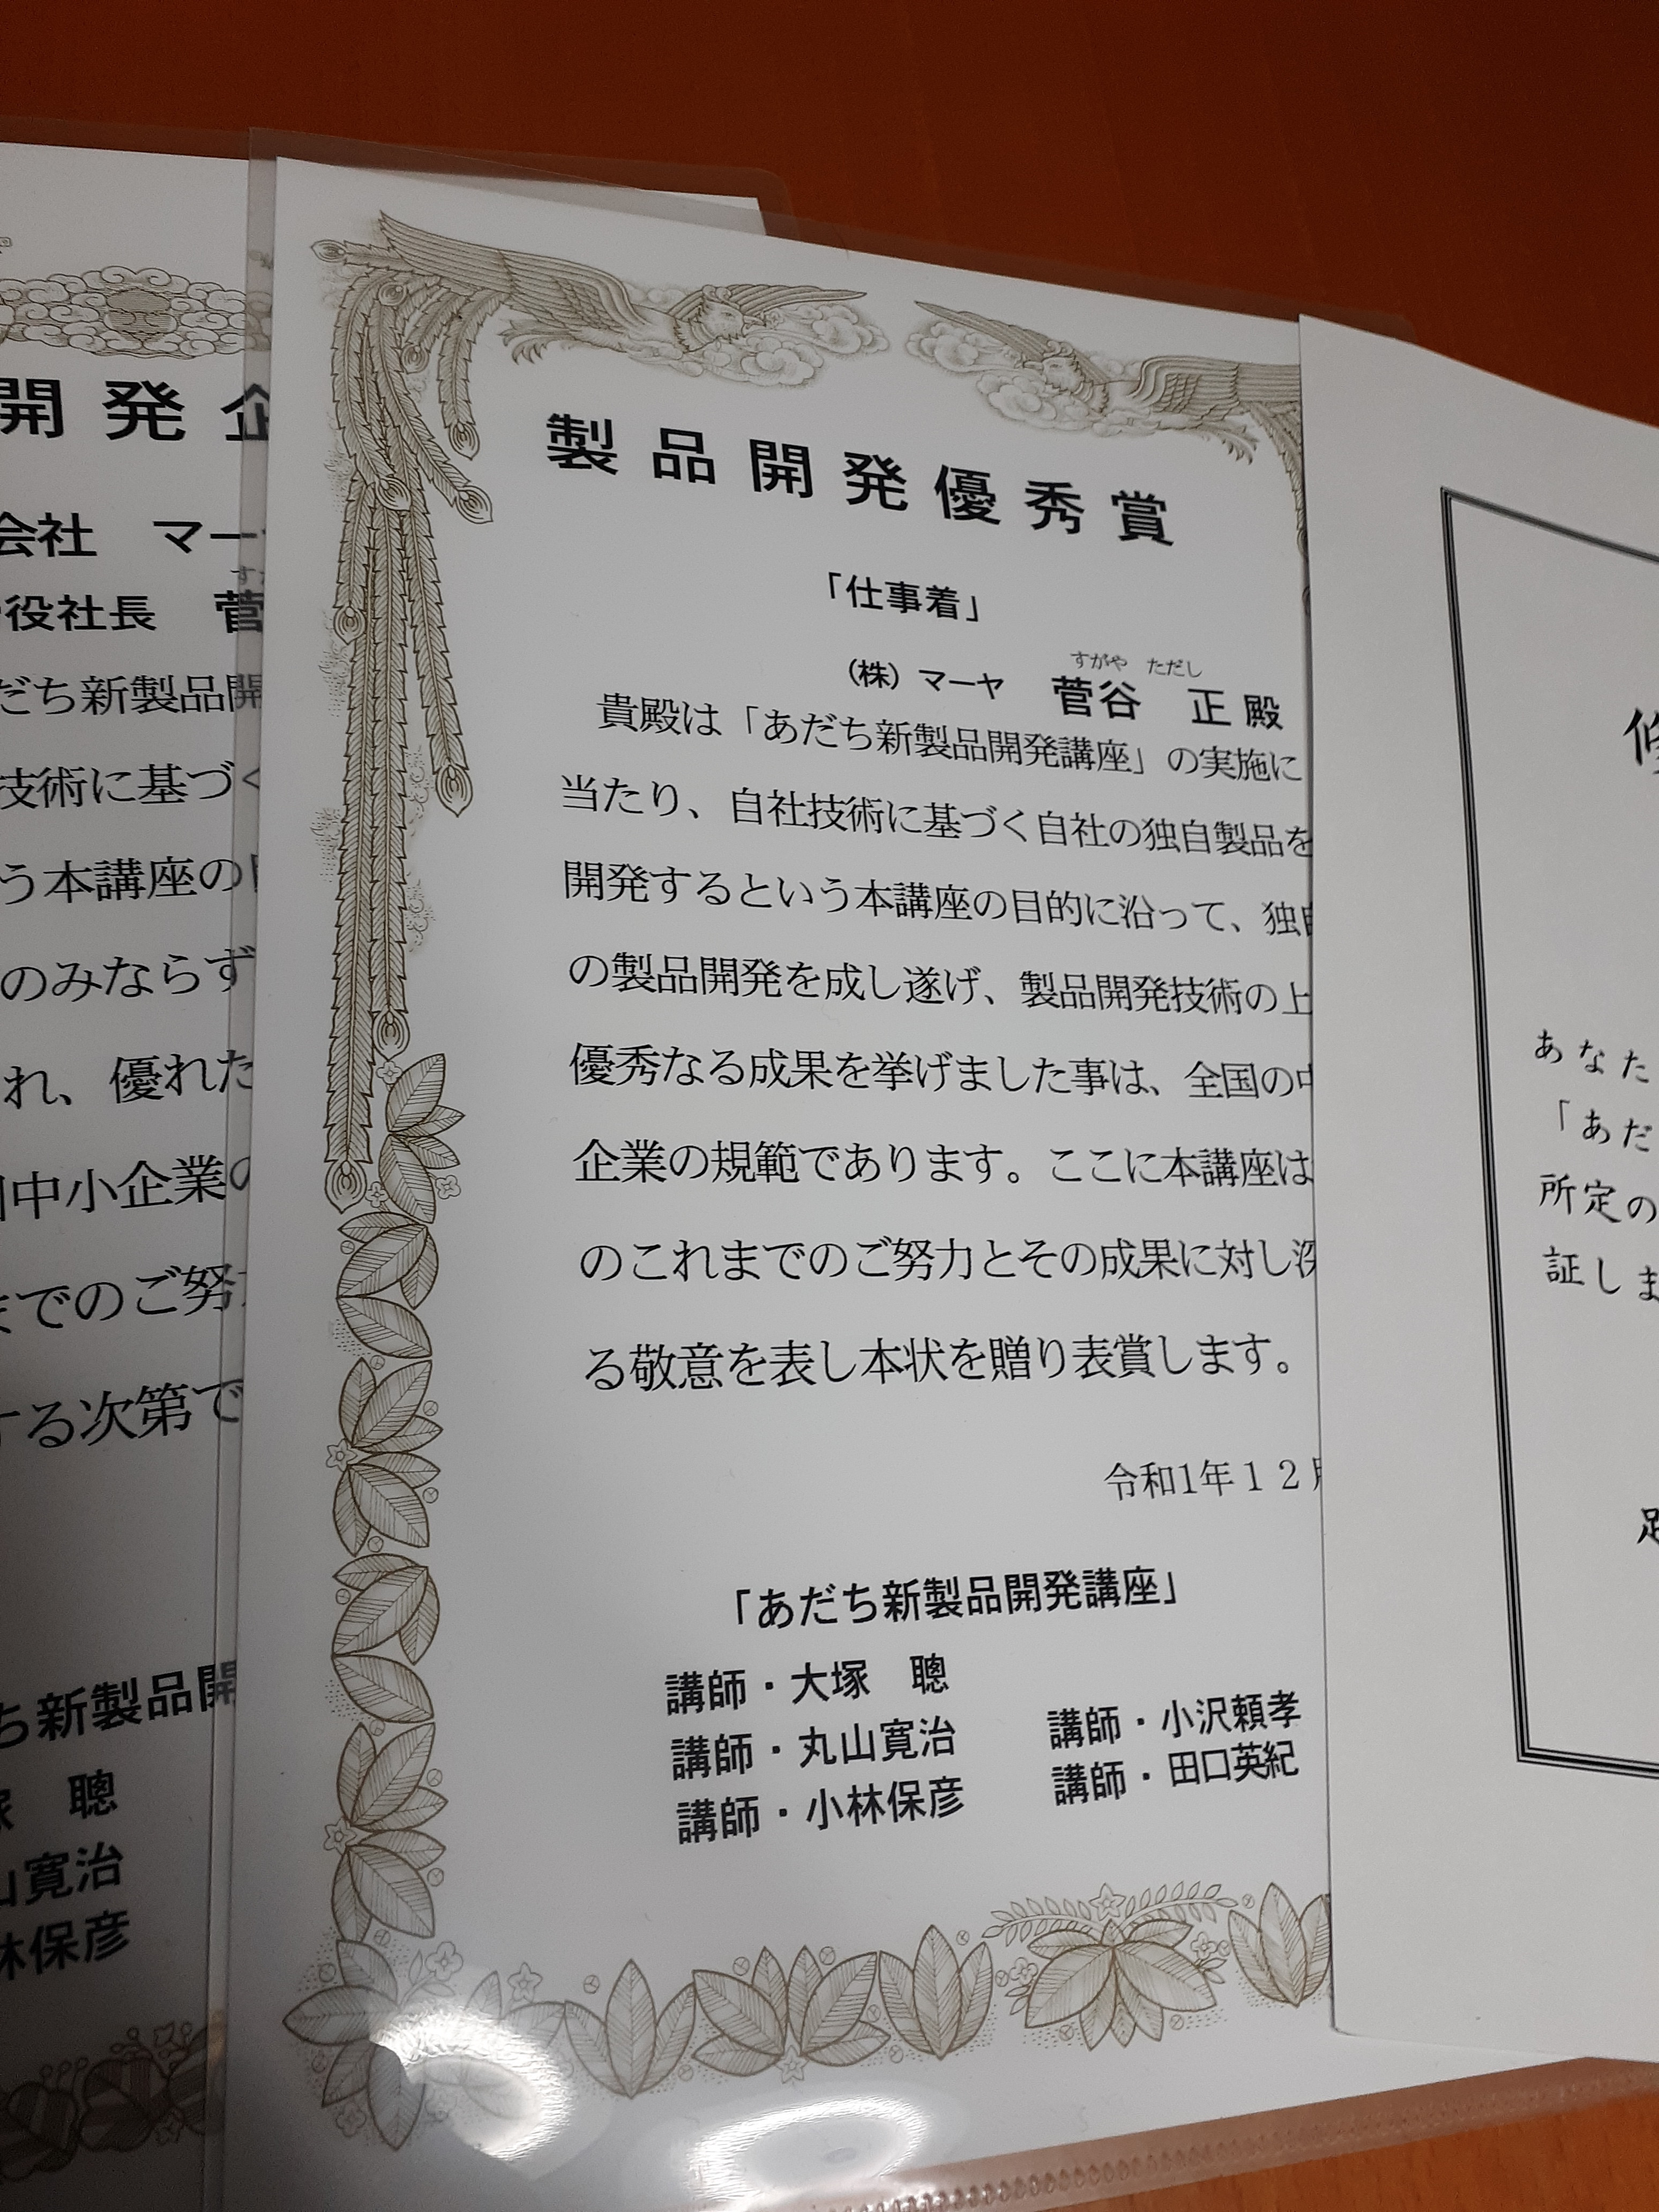 開発企
会社　マー
役社長　菅
だち新製品開
技術に基づく
う本講座の
のみならず
れ、優れた
中小企業の
までのご努
する次第で
ち新製品開
塚　聰
山寛治
林保彦
製品開発優秀賞
「仕事着」
すがや　ただし
（株）マーヤ　菅谷　正 殿
貴殿は「あだち新製品開発講座」の実施に
当たり、自社技術に基づく自社の独自製品を
開発するという本講座の目的に沿って、独自
の製品開発を成し遂げ、製品開発技術の上
優秀なる成果を挙げました事は、全国の中
企業の規範であります。ここに本講座は
のこれまでのご努力とその成果に対し深
る敬意を表し本状を贈り表賞します。
令和1年１２月
「あだち新製品開発講座」
講師・大塚　聰
講師・丸山寛治　講師・小沢頼孝
講師・小林保彦　講師・田口英紀
修
あなた
「あだ
所定の
証しま
足